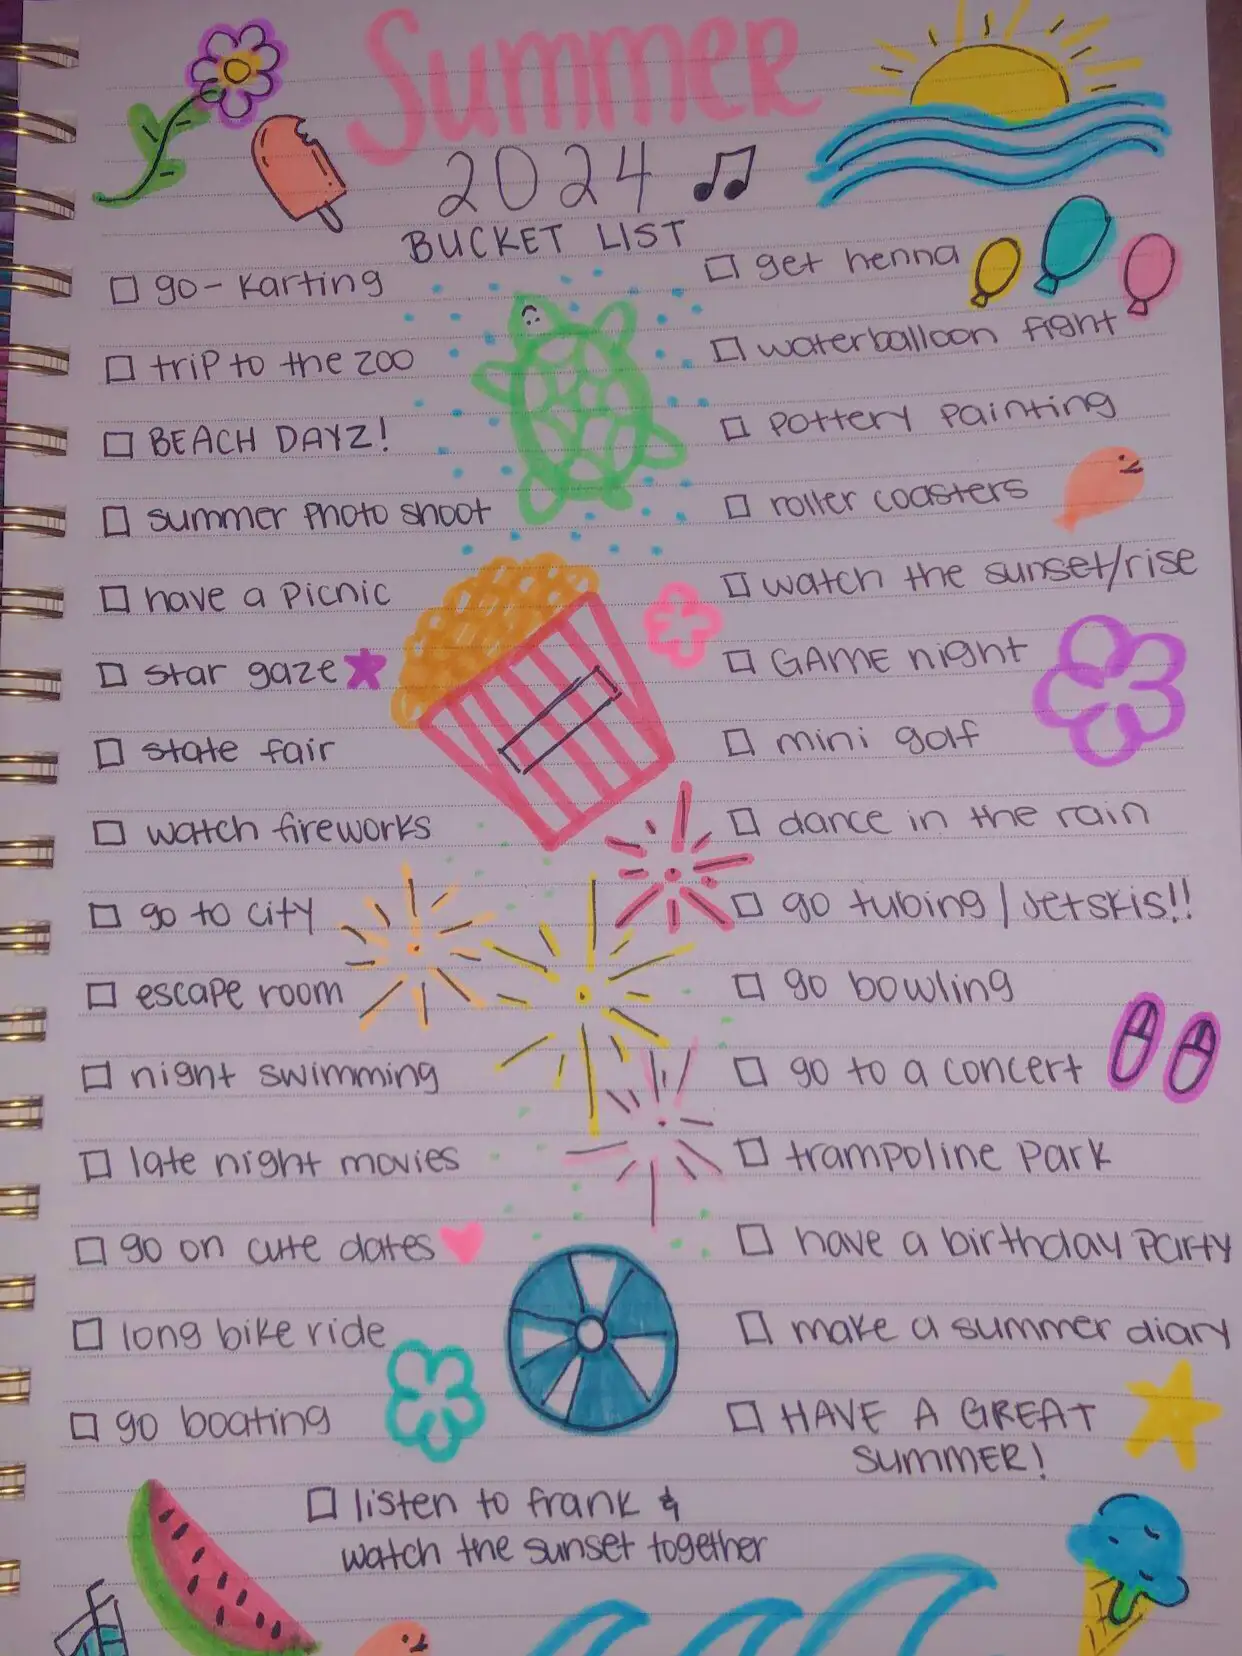 Summer
2024
BUCKET LIST
go-karting
trip to the zoo
BEACH DAYZ!
summer photo shoot
have a picnic
star gaze
state fair
watch fireworks
go to city
escape room
night swimming
late night movies
go on cute dates
long bike ride
go boating
get henna
waterballoon fight
pottery painting
roller coasters
watch the sunset/rise
GAME night
mini golf
dance in the rain
go tubing / Jetskis!!
go bowling
go to a concert
trampoline park
have a birthday party
make a summer diary
HAVE A GREAT
SUMMER!
listen to frank &
watch the sunset together